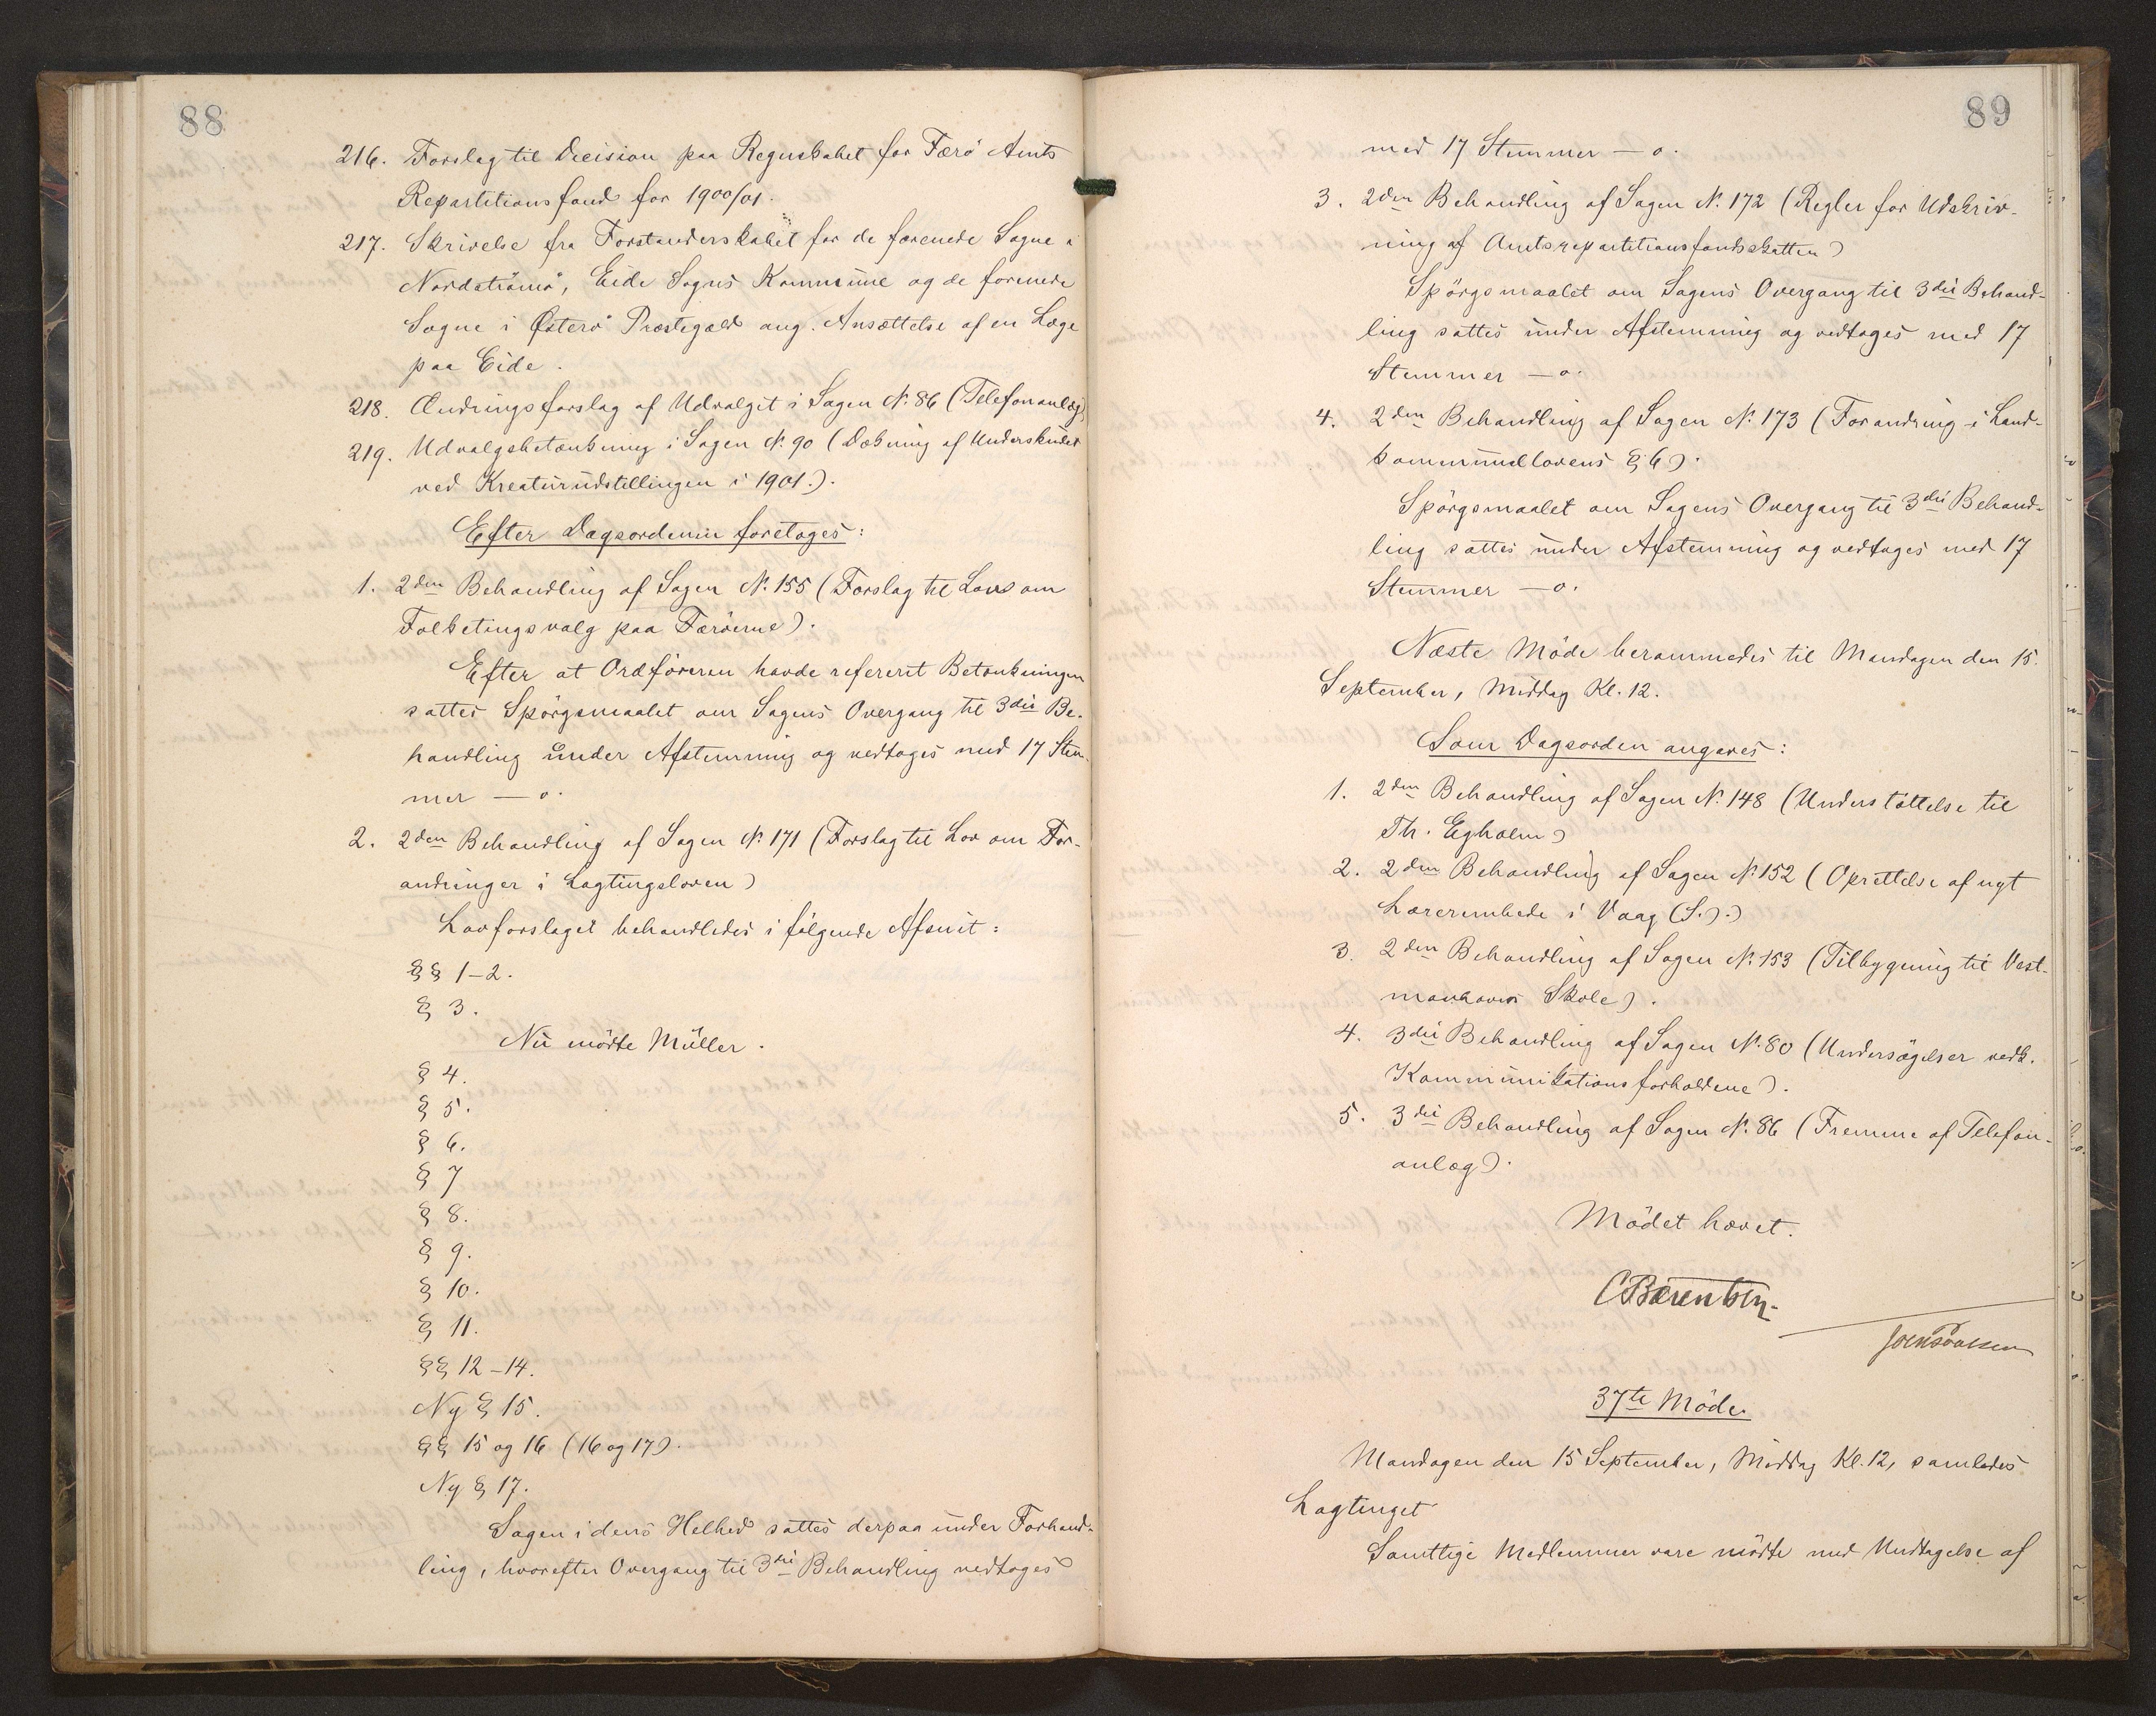 88
216. Forslag til Decision paa Regnskabet for Færö Amts
Repartitionsfond for 1900/01.
217. Skrivelse fra Forstanderskabet for de forenede Sogne i
Nordströmö, Eide Sogns Kommune og de forenede
Sogne i Österö Præstegæld ang. Ansættelse af en Læge
paa Eide.
218. Ændringsforslag af Udvalget i Sagen No. 86 (Telefonanlæg)
219. Udvalgsbetænkning i Sagen No. 90 (Dækning af Underskudet
ved Kreaturudstillingen i 1901.).
Efter Dagsordenen foretoges:
1. 2den Behandling af Sagen No. 155 (Forslag til Lov om
Folketingsvalg paa Færöerne).
Efter at Ordföreren havde refereret Betænkningen
sattes Spörgsmaalet om Sagens Overgang til 3die Be-
handling under Afstemning og vedtoges med 17 Stem-
mer — o.
2. 2den Behandling af Sagen No. 171 (Forslag til Lov om For-
andringer i Lagtingsloven)
Lovforslaget behandledes i fölgende Afsnit:
§§ 1-2.
§ 3.
Nu mödte Müller.
§ 4.
§ 5.
§ 6.
§ 7
§ 8.
§ 9.
§ 10.
§ 11.
§§ 12-14.
Ny § 15.
§§ 15 og 16 (16 og 17).
Ny § 17.
Sagen i dens Helhed sattes derpaa under Forhand-
ling, hvorefter Overgang til 3die Behandling vedtoges
89
med 17 Stemmer — o.
3. 2den Behandling af Sagen No. 172 (Regler for Udskriv-
ning af Amtsrepartitionsfondsskatten)
Spörgsmaalet om Sagens Overgang til 3die Behand-
ling sattes under Afstemning og vedtoges med 17
Stemmer — o.
4. 2den Behandling af Sagen No. 173 (Forandring i Land-
kommunallovens § 6).
Spörgsmaalet om Sagens Overgang til 3die Behand-
ling sattes under Afstemning og vedtoges med 17
Stemmer — o.
Næste Möde berammedes til Mandagen den 15.
September, Middag Kl. 12.
Som Dagsorden angaves:
1. 2den Behandling af Sagen No. 148 (Understöttelse til
Th. Egholm)
2. 2den Behandling af Sagen No. 152 (Oprettelse af nyt
Lærerembede i Vaag (S.).)
3. 2den Behandling af Sagen No. 153 (Tilbygning til Vest-
manhavns Skole).
4. 3die Behandling af Sagen No. 80 (Undersögelser vedk.
Kommunikationsforholdene).
5. 3die Behandling af Sagen No. 86 (Fremme af Telefon-
anlæg).
Mödet hævet.
C Bærentsen
37te Möde.
Mandagen den 15 September, Middag Kl. 12, samledes
Lagtinget
Samtlige Medlemmer vare mödte med Undtagelse af